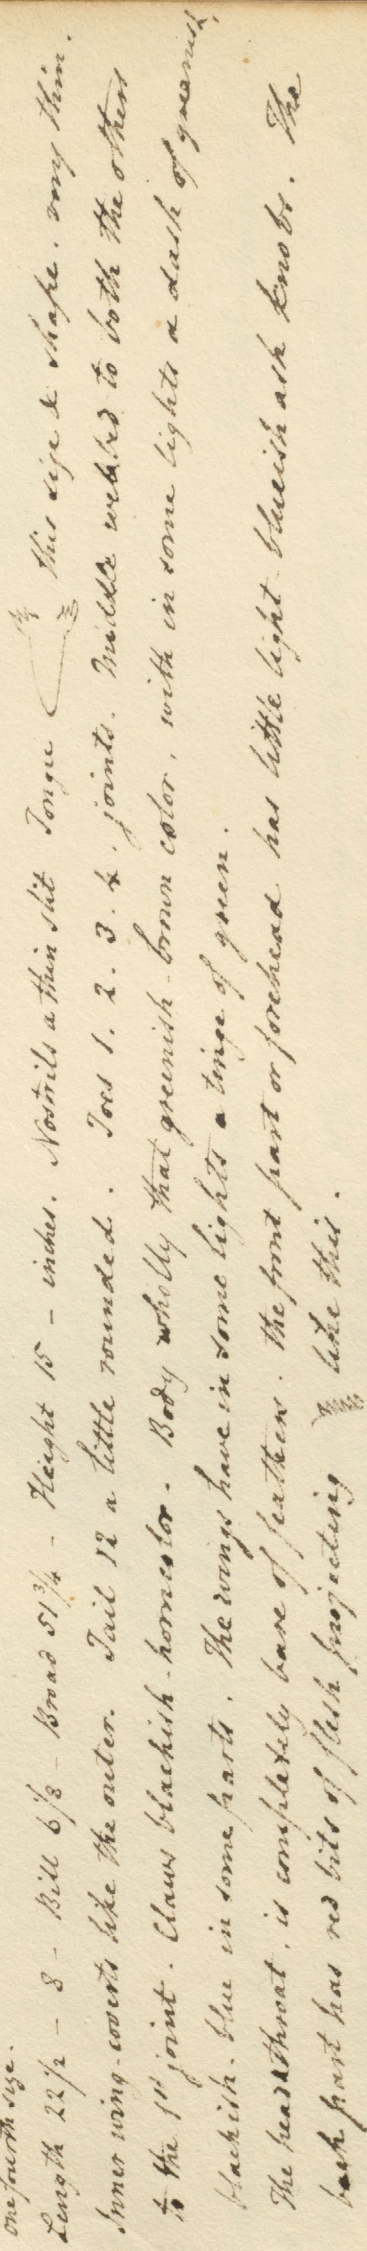 one fourth size.
Length 22 1/2 - 8 - Bill 6 7/8 - Broad 51 3/4 - Height 15 - inches. Nostrils a thin slit Tongue this size & shape. very thin.
Inner wing-coverts like the outer. Tail 12 a little rounded. Toes 1. 2. 3. 4. joints. Middle webbed to both the others
to the 1st joint. Claws blackish-horncolor. Body wholly that greenish-brown color, with in some lights a dash of greenish,
blackish-blue in some parts. The wings have in some lights a tinge of green.
The head & throat, is completely bare of feathers. the front part or forehead has little light blueish ash knobs. The
back part has red bits of flesh projecting like this.